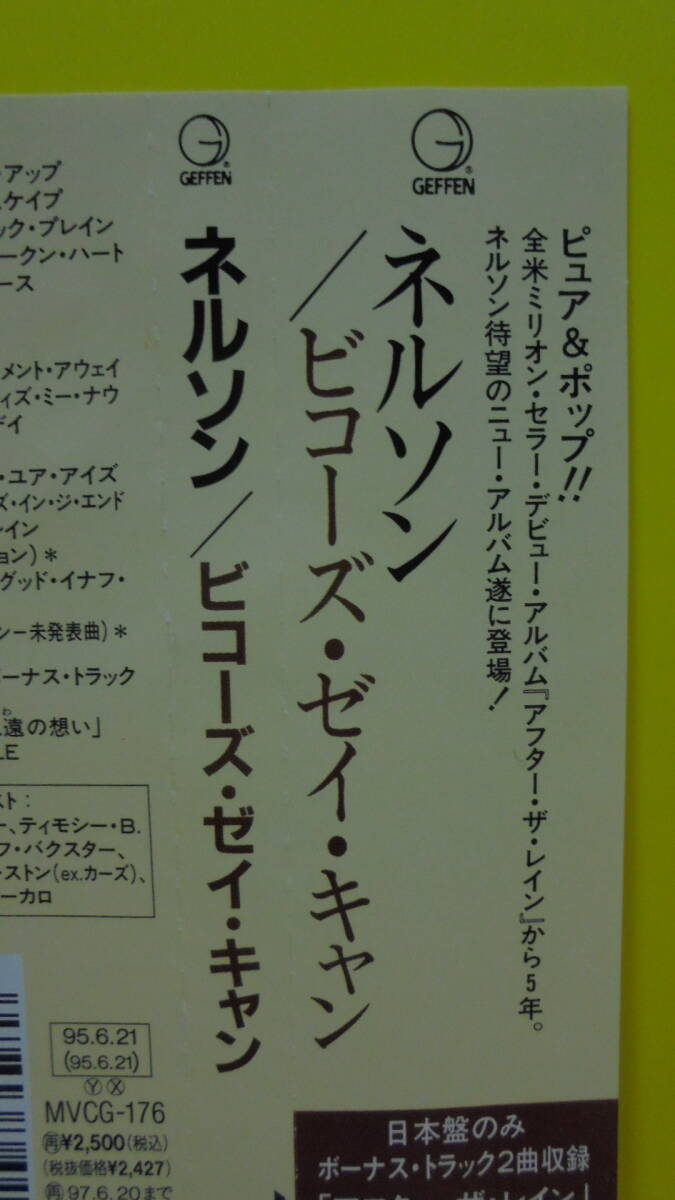 GEFFEN
ピュア&ポップ!!
全米ミリオン・セラー・デビュー・アルバム『アフター・ザ・レイン』から5年。
ネルソン待望のニュー・アルバム遂に登場!
ネルソン
/ビコーズ・ゼイ・キャン
日本盤のみ
ボーナス・トラック2曲収録
GEFFEN
ネルソン/ビコーズ・ゼイ・キャン
・アップ
スケイプ
ック・ブレイン
ークン・ハート
ース
メント・アウェイ
ィズ・ミー・ナウ
デイ
・ユア・アイズ
ズ・イン・ジ・エンド
レイン
ョン)*
グッド・イナフ・
シー未発表曲)*
ボーナス・トラック
遠の想い」
LE
スト:
ー、ティモシー・B.
フ・バクスター、
ストン(ex.カーズ)、
ーカロ
95.6.21
(95.6.21)
Ⓨ Ⓧ
MVCG-176
㊢¥2,500(税込)
(税抜価格¥2,427)
97.6.20まで